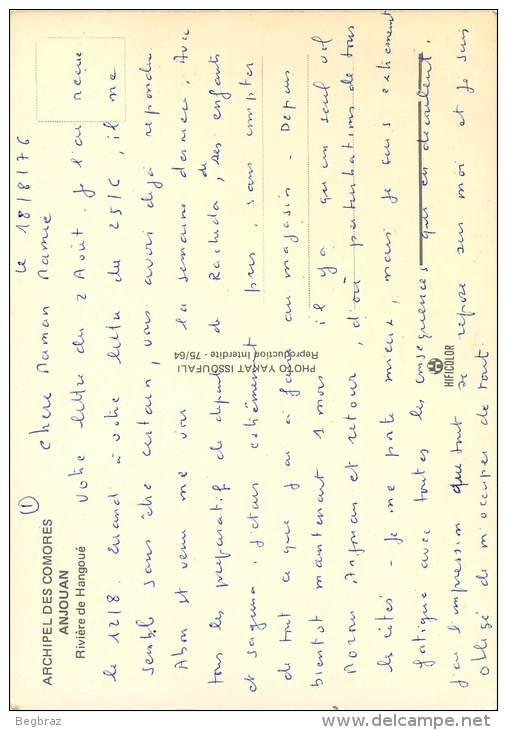 ARCHIPEL DES COMORES
ANJOUAN
Rivière de Hangoué
①
le 18/8/76
Chère Maman Mamie
Votre lettre du 2 Août. Je l'ai reçue
le 12/8. Quand à votre lettre du 25/6, il me
semble sans être certain, vous avoir déjà répondu.
est venu me voir la semaine dernière, Avec
tous les préparatifs de départ de Rachida, de ses enfants
et j'étais extrêmement pris, sans compter
de tout ce que j'ai à faire au magasin - Depuis
bientôt maintenant 1 mois il y a qu'un seul vol
Moroni Anjouan et retour, d'où perturbations de tous
les côtés - Je me porte mieux, mais je suis extrêment
fatigué avec toutes les conséquences qui en découlent.
J'ai l'impression que tout se repose sur moi et je suis
obligé de m'occuper de tout.
PHOTO YAKAT ISSOUFALI
Reproduction Interdite - 75/64
HIFICOLOR
Begbraz
www.delcampe.net